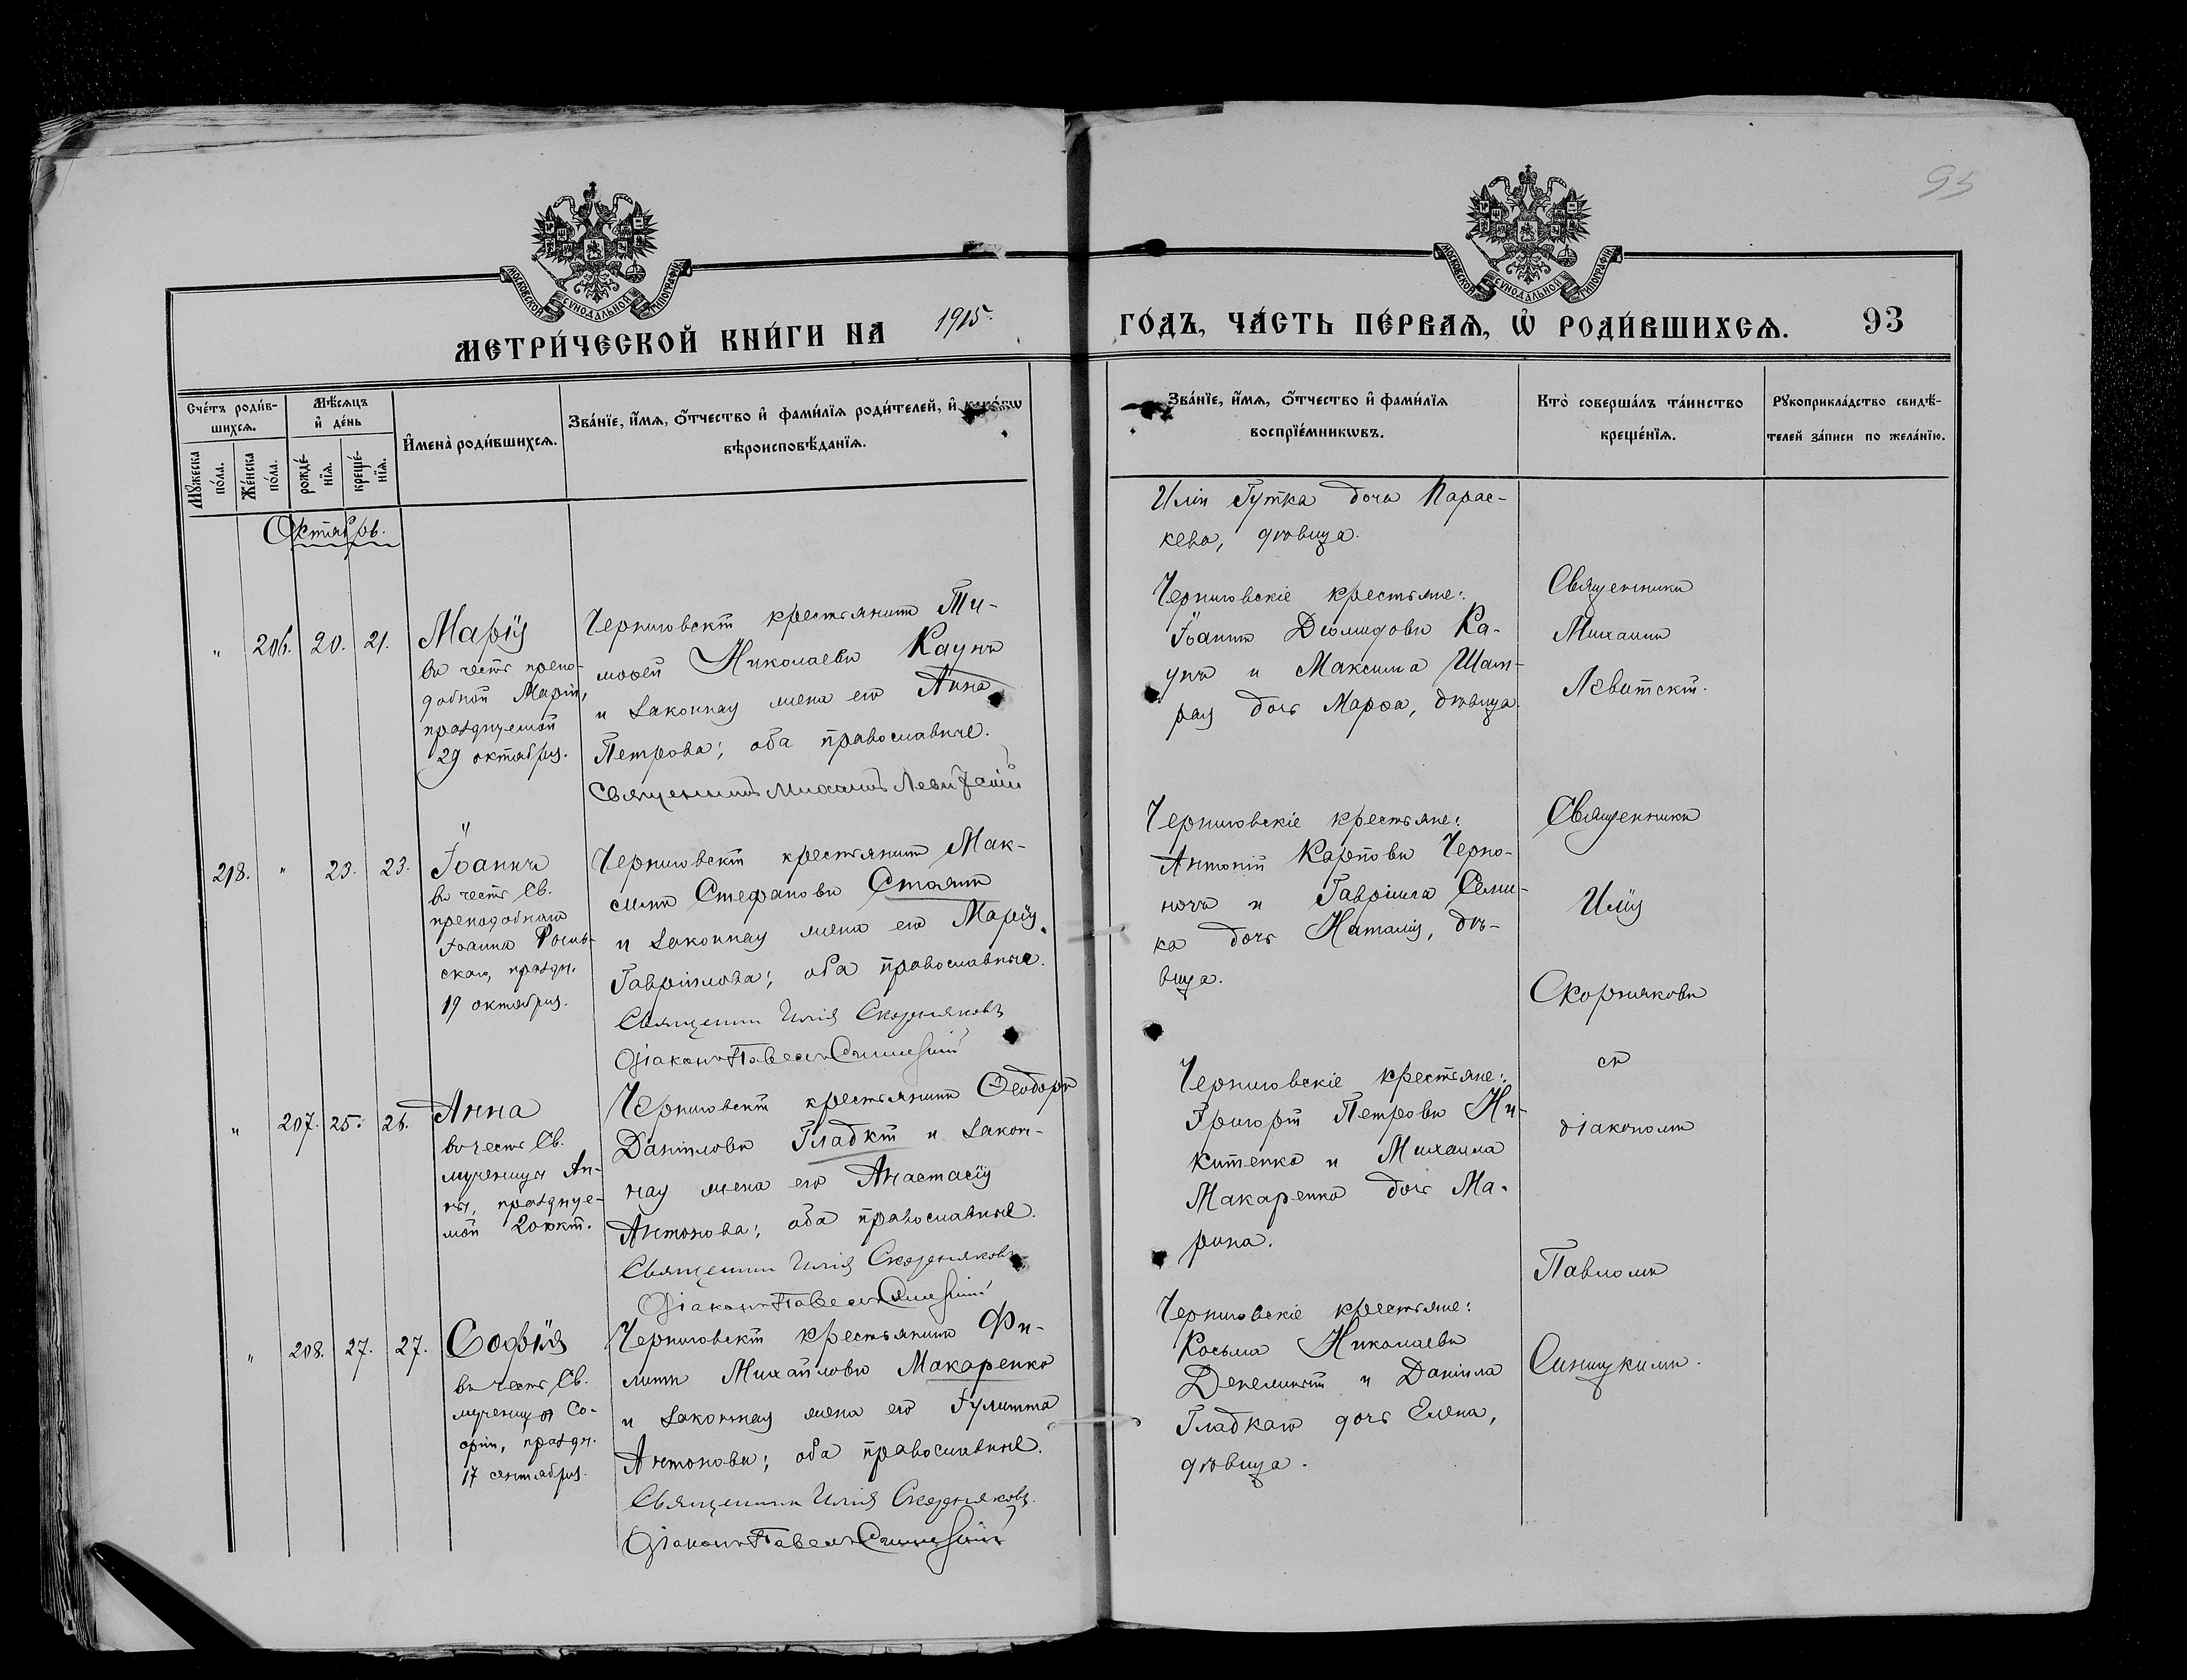 93
МОСКОВСКОЙ СѴНОДАЛЬНОЙ ТИПОГРАФІИ
МОСКОВСКОЙ СѴНОДАЛЬНОЙ ТИПОГРАФІИ
МЕТРИ́ЧЕСКОЙ КНИ́ГИ НА 1915. ГО́ДЪ, ЧА́СТЬ ПЕ́РВАѦ, Ѡ҆ РОДИ́ВШИХСѦ. 93
Сче́тъ роди́в-
шихсѧ.
Мꙋ́жеска
по́ла.
Же́нска
по́ла.
Мѣ́сѧцъ
и҆ де́нь
рожде́-
нїѧ.
креще́-
нїѧ.
И҆мена̀ роди́вшихсѧ.
Зва́нїе, и҆́мѧ, ѻ҆́тчество и҆ фами́лїѧ роди́телей, и҆ како́гѡ
вѣроисповѣ́данїѧ.
Зва́нїе, и҆́мѧ, ѻ҆́тчество и҆ фами́лїѧ
воспрїе́мникѡвъ.
Кто̀ соверша́лъ та́инство
креще́нїѧ.
Рꙋкоприкла́дство свидѣ́-
телей за́писи по жела́нїю.
Октябрь.
Иліи Гутка дочь Парас-
кева, дѣвица.
" 206. 20. 21.
Марія
въ честь препо-
добной Маріи,
празднуемой
29 октября.
Черниговскій крестьянинъ Ти-
моѳей Николаевъ Каунъ
и законная жена его Анна
Петрова; оба православные.
Священникъ Михаилъ Левитскій
Черниговскіе крестьяне:
Іоаннъ Діомидовъ Ка-
унъ и Максима Шам-
рая дочь Марѳа, дѣвица
Священникъ
Михаилъ
Левитскій.
218. " 23. 23.
Іоаннъ
въ честь Св.
преподобнаго
Іоанна Рыль-
скаго, праздн.
19 октября.
Черниговскій крестьянинъ Мак-
симъ Стефановъ Стоянъ
и законная жена его Марія
Гавріилова; оба православные.
Священникъ Илія Скорняковъ
Діаконъ Павелъ Синицкій
Черниговскіе крестьяне:
Антоній Карповъ Черно-
ночъ и Гавріила Семи-
ка дочь Наталія, дѣ-
вица.
Священникъ
Илія
Скорняковъ
съ
діакономъ
Павломъ
Синицкимъ.
" 207. 25. 26.
Анна
въ честь Св.
мученицы Ан-
ны, празднуе-
мой 20 окт.
Черниговскій крестьянинъ Ѳеодоръ
Даніиловъ Гладкій и закон-
ная жена его Анастасія
Антонова; оба православные.
Священникъ Илія Скорняковъ
Діаконъ Павелъ Синицкій
Черниговскіе крестьяне:
Григорій Петровъ Ни-
китенко и Михаила
Макаренко дочь Ма-
рина.
" 208. 27. 27.
Софія
въ честь Св.
мученицы Со-
фіи, праздн.
17 сентября.
Черниговскій крестьянинъ Фи-
липпъ Михайловъ Макаренко
и законная жена его Іулитта
Антонова; оба православные.
Священникъ Илія Скорняковъ
Діаконъ Павелъ Синицкій
Черниговскіе крестьяне:
Косьма Николаевъ
и Даніила
Гладкаго дочь Елена,
дѣвица.